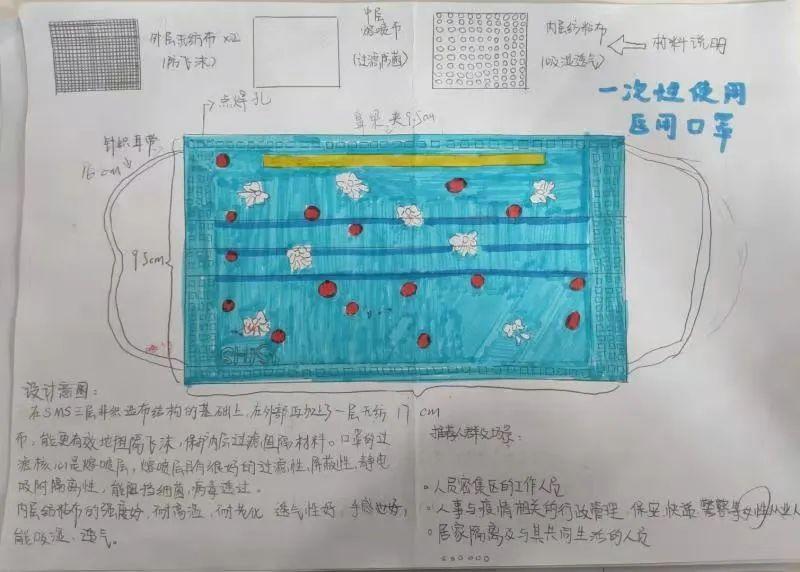 外层无纺布 x2
(隔飞沫)
中层
熔喷布
(过滤隔菌)
内层纺粘布
(吸湿透气)
材料说明
一次性使用
医用口罩
点焊孔
鼻梁夹9.5cm
针织耳带
16cm
9.5cm
17cm
设计意图:
在SMS三层非织造布结构的基础上,在外部再加上了一层无纺
布,能更有效地阻隔飞沫,保护内层过滤阻隔材料。口罩的过
滤核心是熔喷层,熔喷层具有很好的过滤性,屏蔽性,静电
吸附隔离性,能阻挡细菌,病毒透过。
内层纺粘布的强度好,耐高温,耐老化 透气性好,手感也好,
能吸湿、透气。
推荐人群及场景:
人员密集区的工作人员
人事与疫情相关的行政管理、保安、快递、警察等
居家隔离及与其共同生活的人员